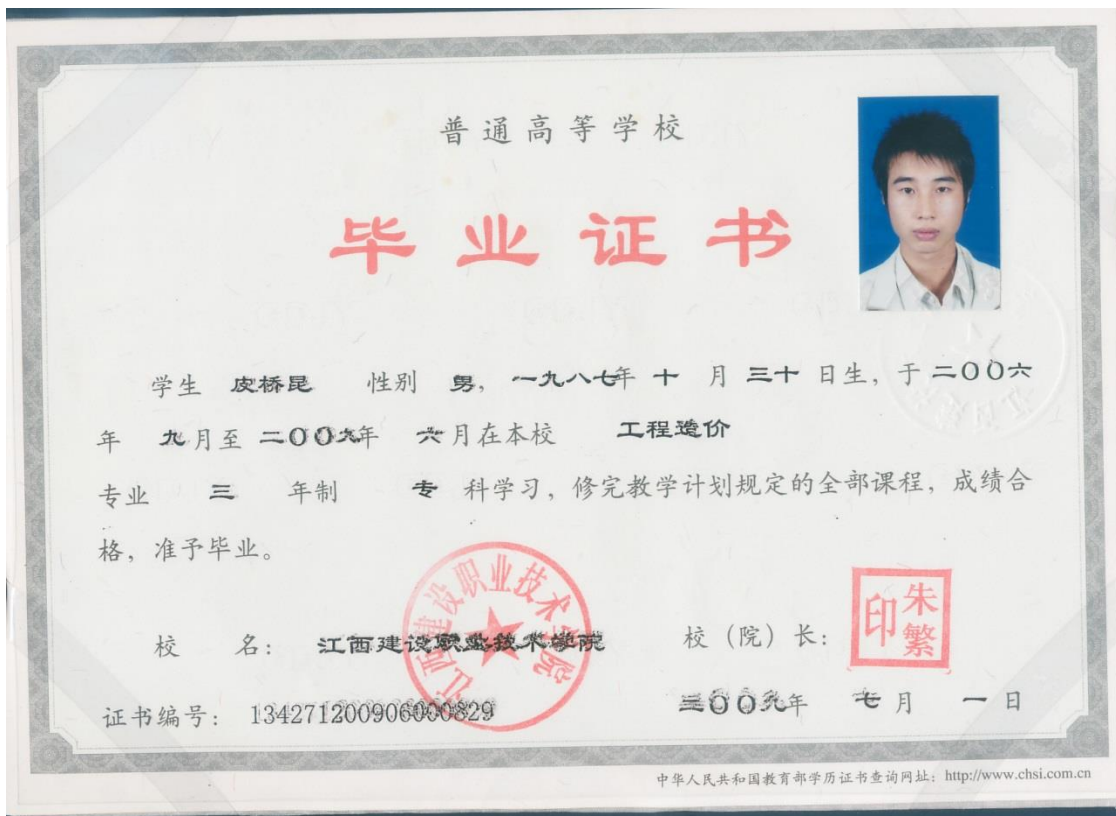 普通高等学校
毕业证书
学生 皮桥昆 性别 男，一九八七年 十 月 三十 日生，于 二〇〇六
年 九月至 二〇〇九年 六月在本校 工程造价
专业 三 年制 专 科学习，修完教学计划规定的全部课程，成绩合
格，准予毕业。
江西建设职业技术学院
朱繁印
校 名：江西建设职业技术学院 校（院）长：
证书编号：134271200906000829 二〇〇九年 七月 一日
中华人民共和国教育部学历证书查询网址：http://www.chsi.com.cn